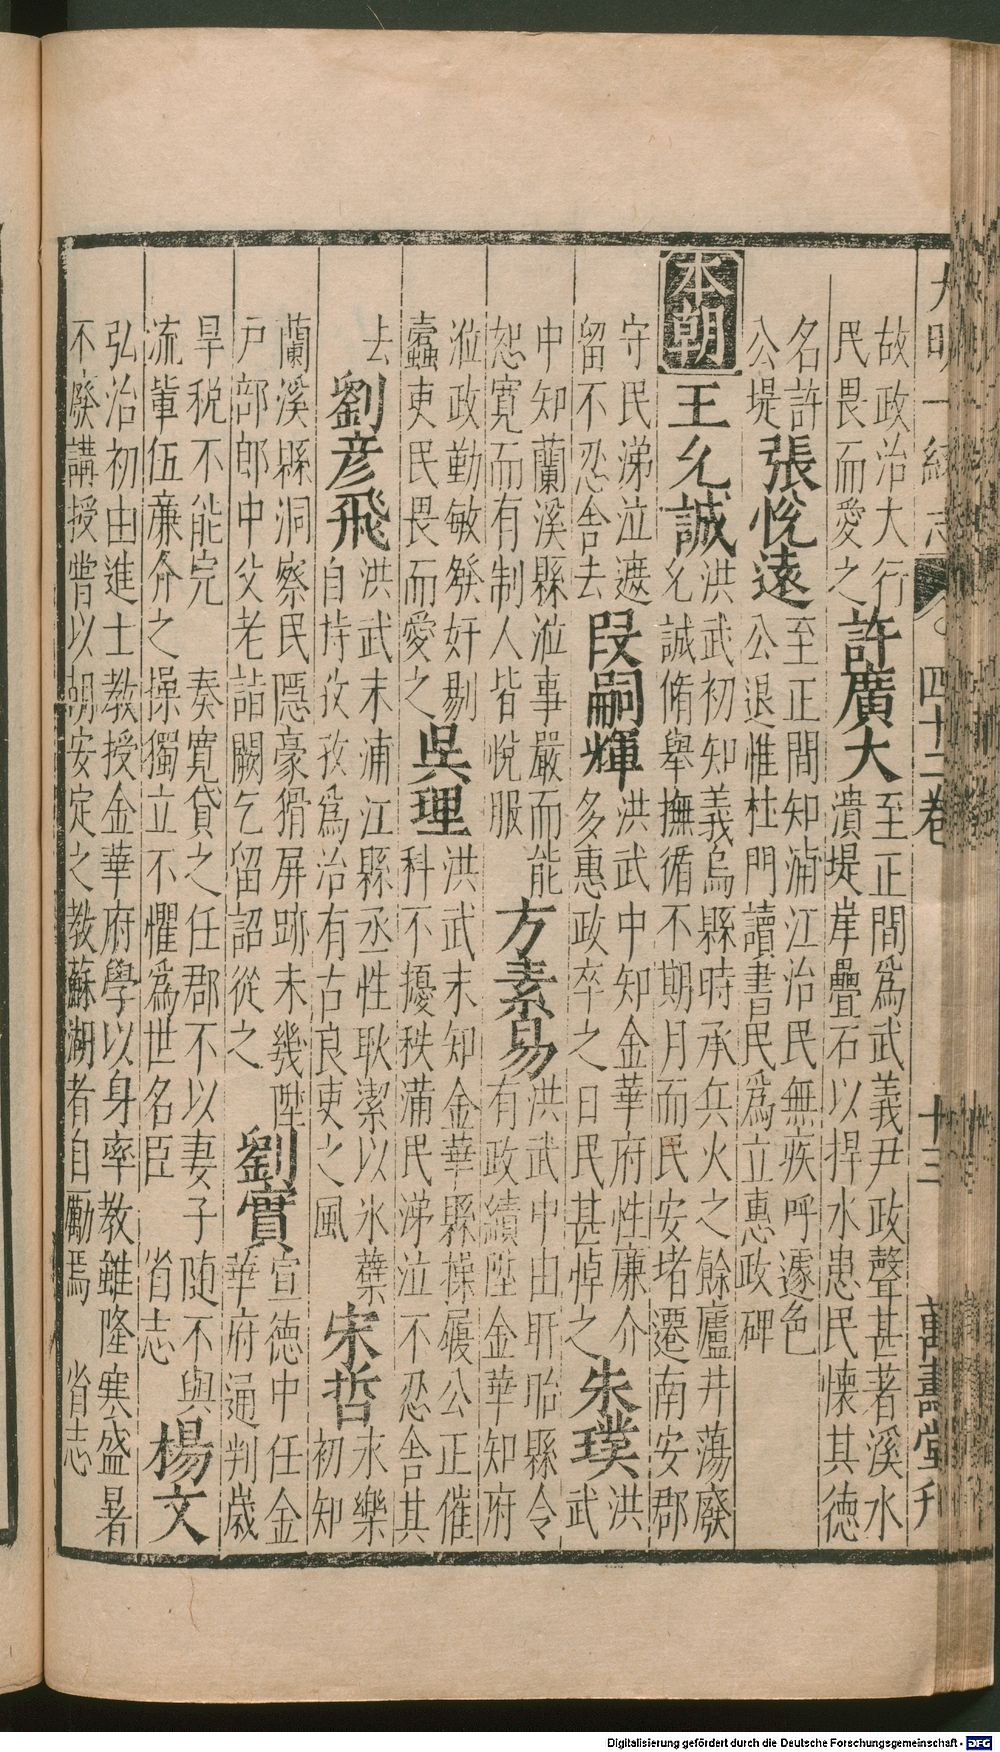 大明一統志 四十二卷 十三 萬壽堂刊
故政治大行
民畏而愛之
許廣大
至正間為武義尹政聲甚著溪水
潰堤岸疊石以捍水患民懐其德
名許
公堤
張悅遠
至正間知浦江治民無疾呼遽色
公退惟杜門讀書民為立惠政碑
本朝
王允誠
洪武初知義烏縣時承兵火之餘廬井蕩廢
允誠脩舉撫循不期月而民安堵遷南安郡
守民涕泣遮
留不忍舍去
段嗣輝
洪武中知金華府性廉介
多惠政卒之日民甚悼之
朱璞
洪
武
中知蘭溪縣涖事嚴而能
恕寛而有制人皆悅服
方素易
洪武中由盱眙縣令
有政績陞金華知府
涖政勤敏發奸剔
蠹吏民畏而愛之
吳理
洪武末知金華縣操履公正催
科不擾秩滿民涕泣不忍舍其
去
劉彥飛
洪武末浦江縣丞性耿潔以氷蘗
自持孜孜為治有古良吏之風
宋哲
永樂
初知
蘭溪縣洞察民隱豪猾屏跡未幾陞
戶部郎中父老詣闕乞留詔從之
劉實
宣德中任金
華府通判歲
旱稅不能完 奏寛貸之任郡不以妻子随不與
流輩伍廉介之操獨立不懼為世名臣 省志
楊文
弘治初由進士教授金華府學以身率教雖隆寒盛暑
不廢講授甞以胡安定之教蘇湖者自勵焉 省志
Digitalisierung gefördert durch die Deutsche Forschungsgemeinschaft - DFG